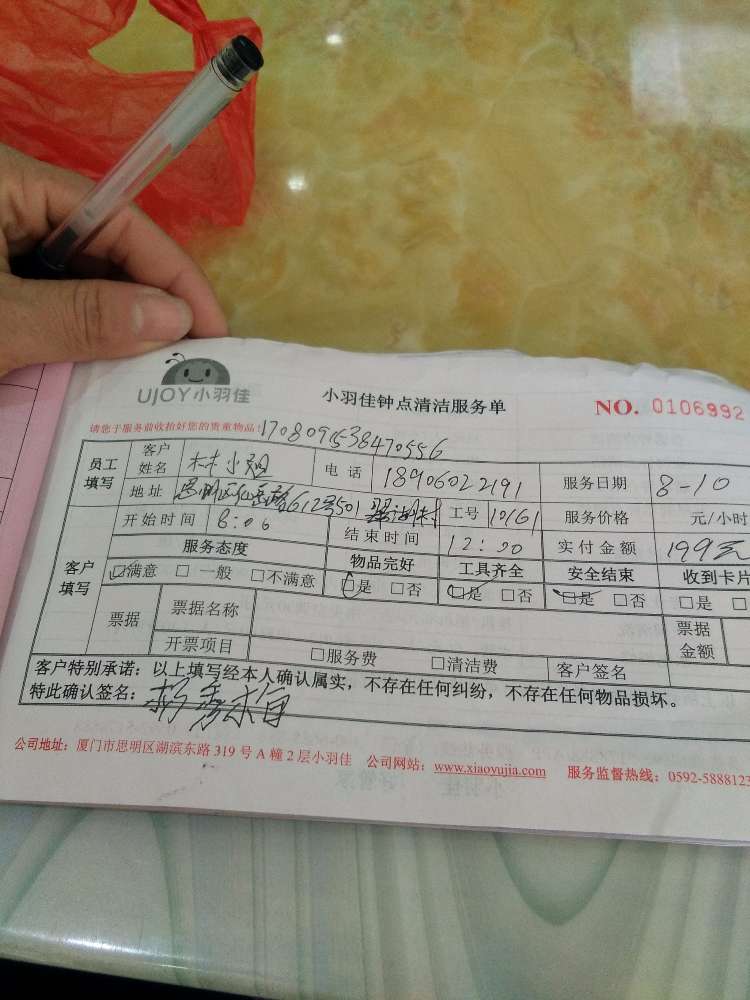 UJOY小羽佳
小羽佳钟点清洁服务单
NO. 0106992
请您于服务前收拾好您的贵重物品!
170809153847055 6
员工填写 客户姓名 林小姐 电话 18906022191 服务日期 8-10
地址 思明区仙岳路612号501 工号 10161 服务价格 元/小时
客户填写 开始时间 8:00 结束时间 12:00 实付金额 199元
服务态度 物品完好 工具齐全 安全结束 收到卡片
☑满意 □一般 □不满意 ☑是 □否 ☑是 □否 ☑是 □否 □是 □
票据 票据名称 票据金额
开票项目 □服务费 □清洁费 客户签名
客户特别承诺：以上填写经本人确认属实，不存在任何纠纷，不存在任何物品损坏。
特此确认签名：
公司地址：厦门市思明区湖滨东路 319 号 A 幢 2 层小羽佳 公司网站：www.xiaoyujia.com 服务监督热线：0592-5888123